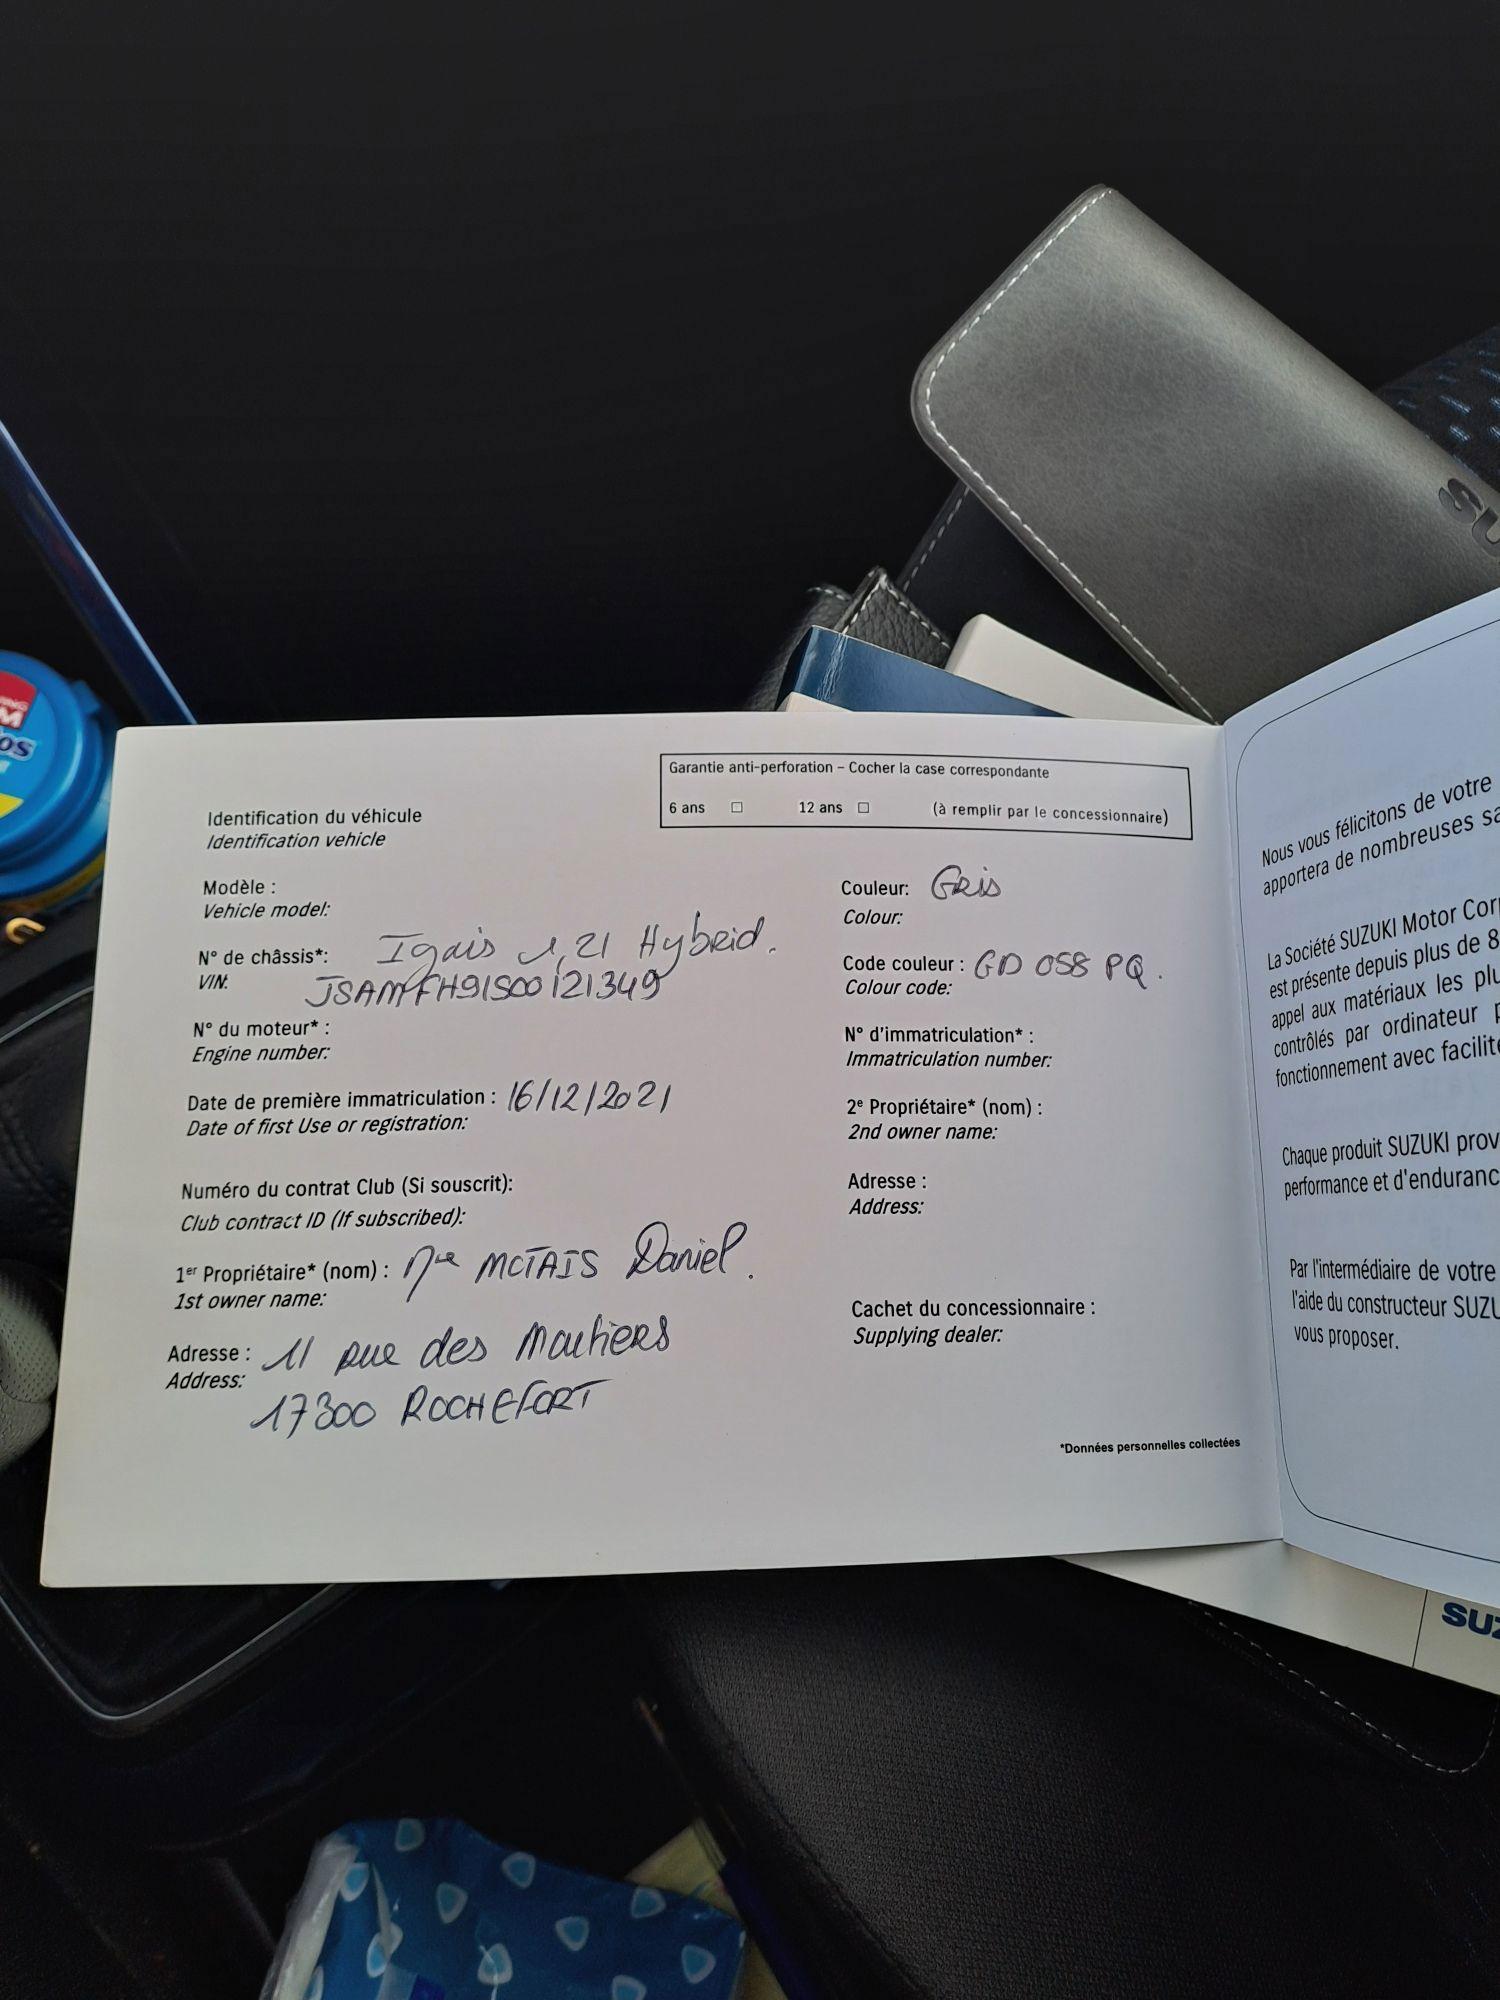 SU
Garantie anti-perforation – Cocher la case correspondante
6 ans ☐ 12 ans ☐ (à remplir par le concessionnaire)
Identification du véhicule
Identification vehicle
Modèle :
Vehicle model:
Ignis 1,2l Hybrid.
N° de châssis*:
VIN:
JSAMFH91S00121349
N° du moteur* :
Engine number:
Date de première immatriculation : 16/12/2021
Date of first Use or registration:
Numéro du contrat Club (Si souscrit):
Club contract ID (If subscribed):
1er Propriétaire* (nom) : Daniel.
1st owner name:
Adresse : 11 rue des
Address:
17300 ROCHEFORT
Couleur: Gris
Colour:
Code couleur : GD 058 PQ.
Colour code:
N° d'immatriculation* :
Immatriculation number:
2e Propriétaire* (nom) :
2nd owner name:
Adresse :
Address:
Cachet du concessionnaire :
Supplying dealer:
*Données personnelles collectées
Nous vous félicitons de votre
apportera de nombreuses sa
La Société SUZUKI Motor Corp
est présente depuis plus de 8
appel aux matériaux les plu
contrôlés par ordinateur p
fonctionnement avec facilité
Chaque produit SUZUKI prov
performance et d'enduranc
Par l'intermédiaire de votre
l'aide du constructeur SUZU
vous proposer.
SUZ